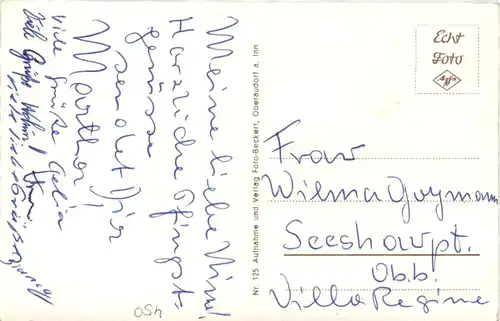 Meine liebe Wima!
Herzliche Pfingst-
grüsse
sendet Dir
Martha!
Viele Grüße Gelia
Viele Grüße
viele liebe Grüße
Nr. 125 Aufnahme und Verlag Foto-Beckert, Oberaudorf a. Inn
Echt
Foto
Agfa
Frau
Wilma Guymann
Seeshaupt.
Ob.b.
Villa Regine
450